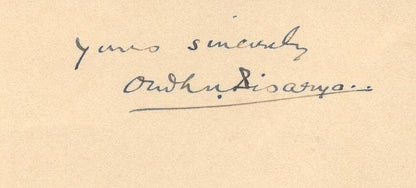 yours sincerely
Oudh N. Bisarya..